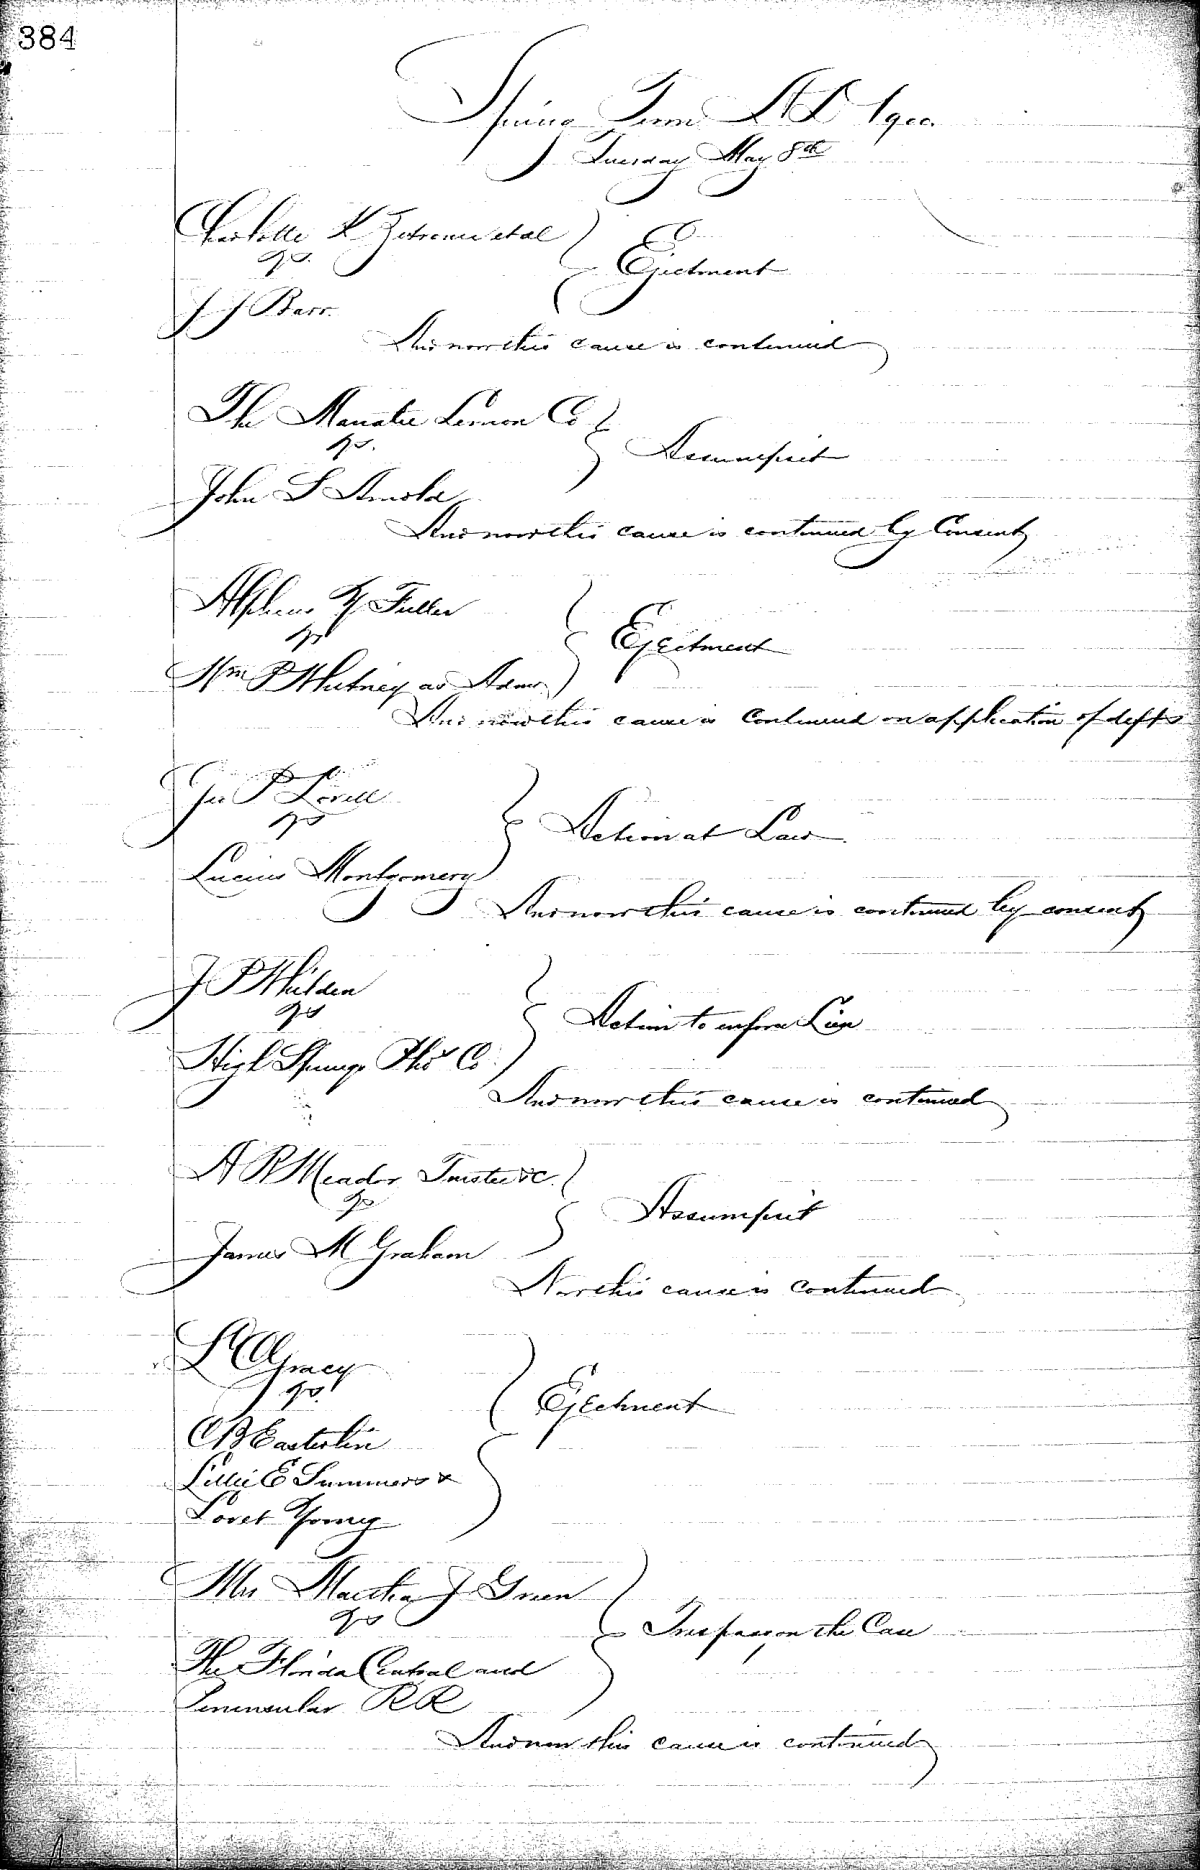 384
Spring Term A D 1900.
Tuesday May 8th
Charlotte K et al
vs.
Ejectment
J J Barr.
And now this cause is continued
The Manatee Lemon Co
vs.
Assumpsit
John S Arnold
And now this cause is continued by Consent
Alpheus Y Fuller
vs
Ejectment
Wm P Whitney as Admr
And now this cause is continued on application of defts
P Lovell
vs
Action at Law
Lucius Montgomery
And now this cause is continued by consent
J P Whilden
vs
Action to enforce Lien
High Springs Phos Co
And now this cause is continued
A R Meador Trustee &c.
vs
Assumpsit
James M Graham
Now this cause is continued
L C Gracy
vs.
Ejectment
C B Easterlin
Lillie E Summers &
Lovet Young
Mrs Martha J Green
vs
Trespass on the Case
The Florida Central and
Peninsular R R
And now this cause is continued